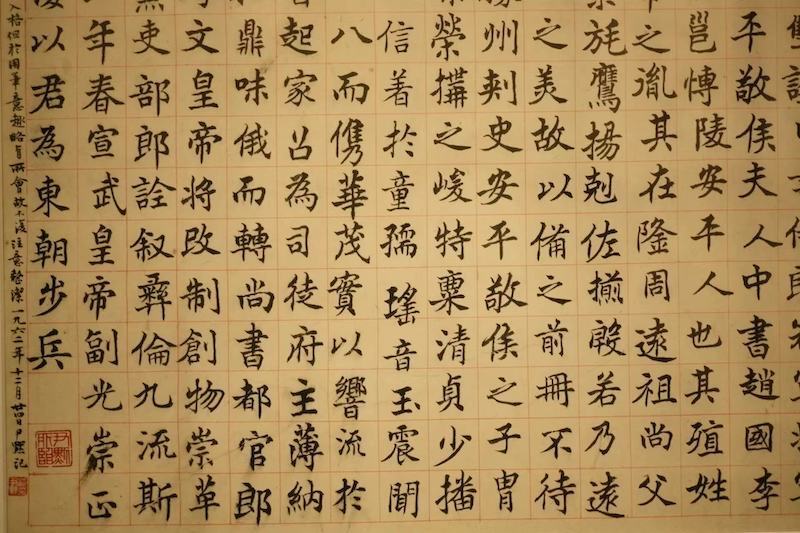 平敬侯夫人中書趙國李
邕愽陵安平人也其殖姓
之胤其在隆周遠祖尚父
旄鷹揚剋佐揃殷若乃遠
之美故以備之前冊不待
州刾史安平敬侯之子胄
榮搆之峻特稟清貞少播
信著於童孺瑤音玉震聞
八而儁華茂實以響流於
起家召為司徒府主薄納
鼎味俄而轉尚書都官郎
文皇帝將改制創物崇革
吏部郎詮叙彝倫九流斯
年春宣武皇帝副光崇正
以君為東朝步兵
入格但於用筆意趣略有兩會故不復注意整潔一九六二年十二月廿四日默記